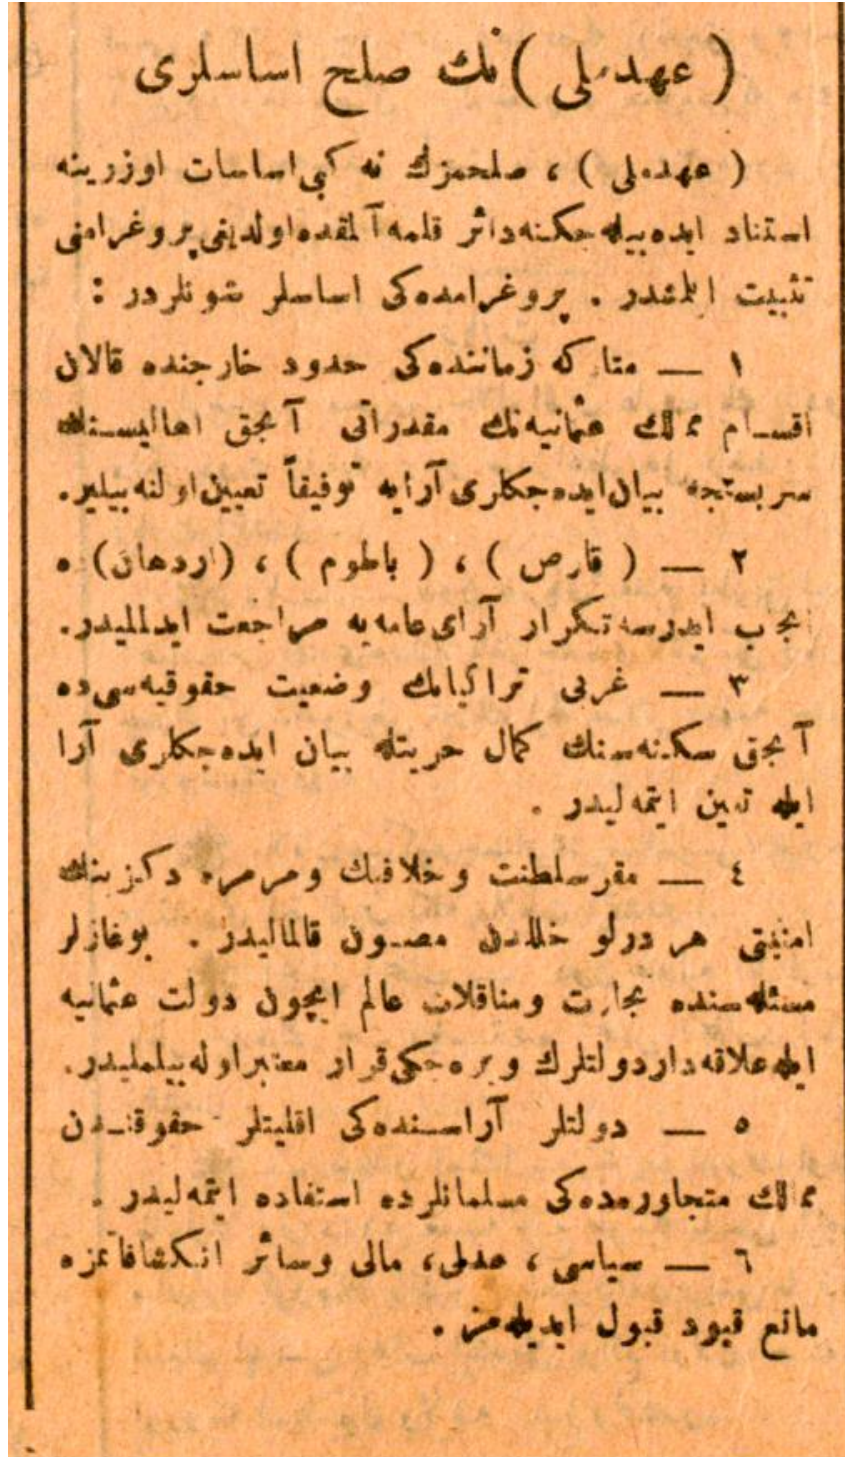 ( عهد ملی ) نك صلح اساسلری
( عهد ملی ) ، صلحمزك نه كبی اساسات اوزرینه
استناد ایده بیله جكنه دائر قلمه آلمقده اولدیغی پروغرامنی
تثبیت ایلمشدر . پروغرامده كی اساسلر شونلردر :
١ — متاركه زماننده كی حدود خارجنده قالان
اقسام ممالك عثمانیه نك مقدراتی آنجق اهالیسنك
سربستجه بیان ایده جكلری آرایه توفیقاً تعیین اولنه بیلیر.
٢ — ( قارص ) ، ( باطوم ) ، (اردهان) ه
ایجاب ایدرسه تكرار آرای عامه یه مراجعت ایدلملیدر.
٣ — غربی تراكیانك وضعیت حقوقیه سی ده
آنجق سكنه سنك كمال حریتله بیان ایده جكلری آرا
ایله تعین ایتمه لیدر .
٤ — مقر سلطنت و خلافتك و مرمره دكزینك
امنیتی هر درلو خللدن مصون قالمالیدر . بوغازلر
مسئله سنده تجارت ومناقلات عالم ایچون دولت عثمانیه
ایله علاقه دار دولتلرك ویره جكی قرار معتبر اوله بیلملیدر.
٥ — دولتلر آراسنده كی اقلیتلر حقوقندن
ممالك متجاوره ده كی مسلمانلرده استفاده ایتمه لیدر .
٦ — سیاسی ، عدلی، مالی وسائر انكشافاتمزه
مانع قیود قبول ایدیله مز .